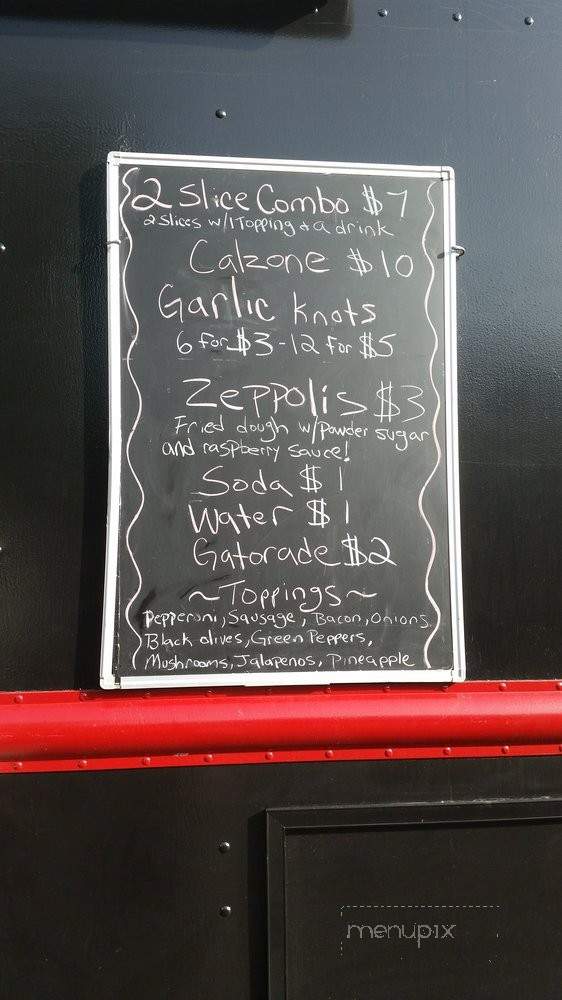 2 Slice Combo $7
2 Slices w/1 Topping & a drink
Calzone $10
Garlic Knots
6 for $3 - 12 for $5
Zeppolis $3
Fried dough w/powder sugar
and raspberry sauce!
Soda $1
Water $1
Gatorade $2
~Toppings~
Pepperoni, Sausage, Bacon, Onions,
Black olives, Green Peppers,
Mushrooms, Jalapenos, Pineapple
menupix